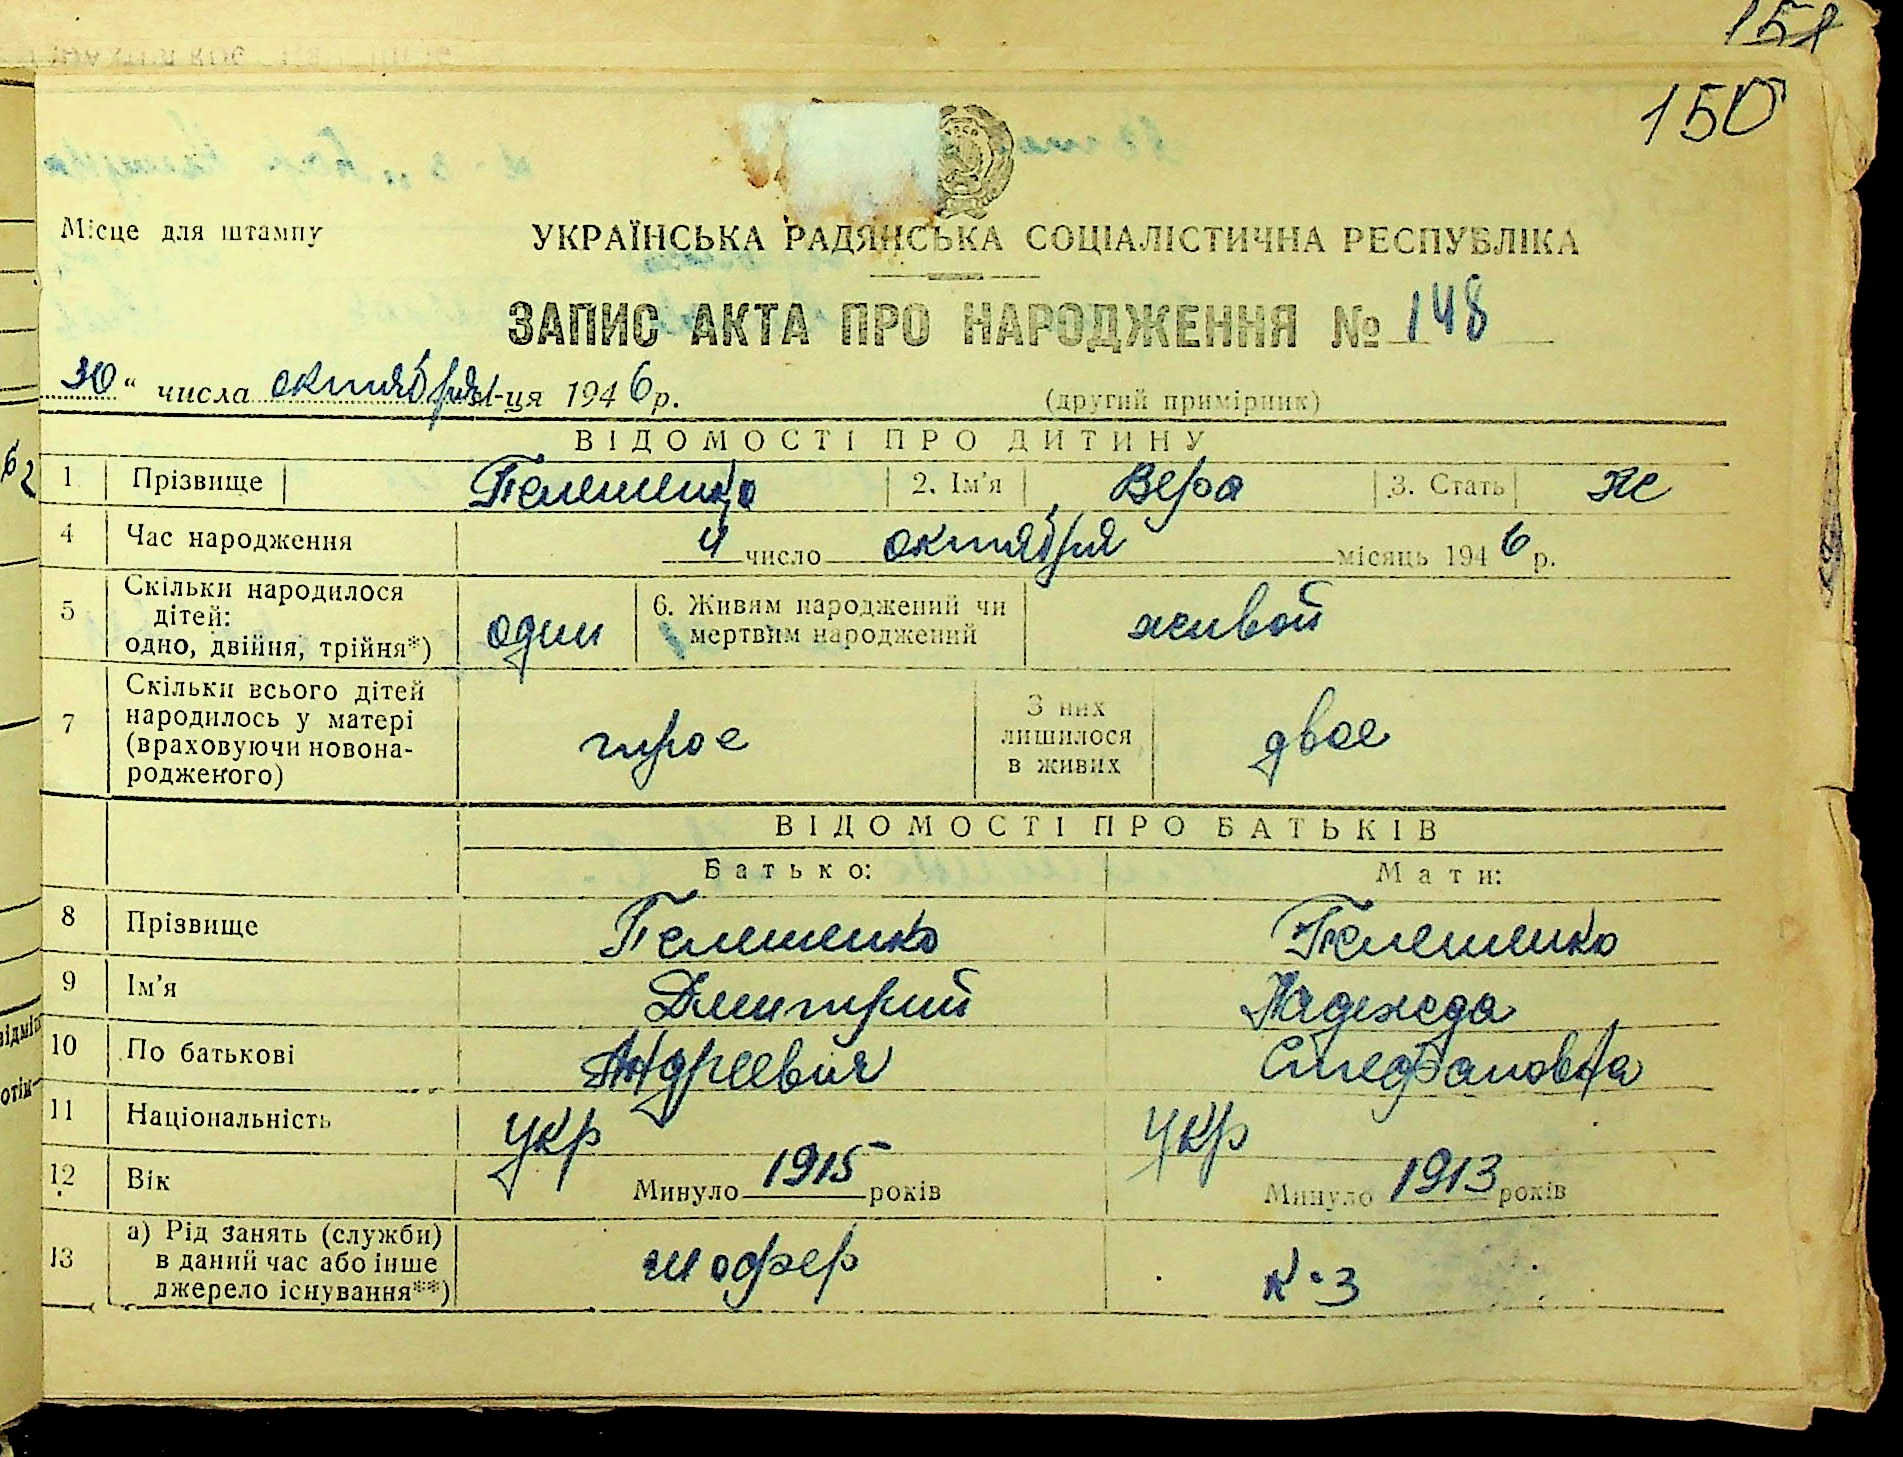 151
150
Місце для штампу
УКРАЇНСЬКА РАДЯНСЬКА СОЦІАЛІСТИЧНА РЕСПУБЛІКА
ЗАПИС АКТА ПРО НАРОДЖЕННЯ № 148
30 " числа октября м-ця 1946 р.
(другий примірник)
ВІДОМОСТІ ПРО ДИТИНУ
1 Прізвище Телешенко 2. Ім'я Вера 3. Стать ж
4 Час народження 4 число октября місяць 1946 р.
5 Скільки народилося дітей: одно, двійня, трійня*) один 6. Живим народжений чи мертвим народжений живой
7 Скільки всього дітей народилось у матері (враховуючи новонародженого) трое З них лишилося в живих двое
ВІДОМОСТІ ПРО БАТЬКІВ
Батько: Мати:
8 Прізвище Телешенко Телешенко
9 Ім'я Дмитрий Надежда
10 По батькові Андреевич Стефановна
11 Національність укр укр
12 Вік Минуло 1915 років Минуло 1913 років
13 а) Рід занять (служби) в даний час або інше джерело існування**) шофер к-з